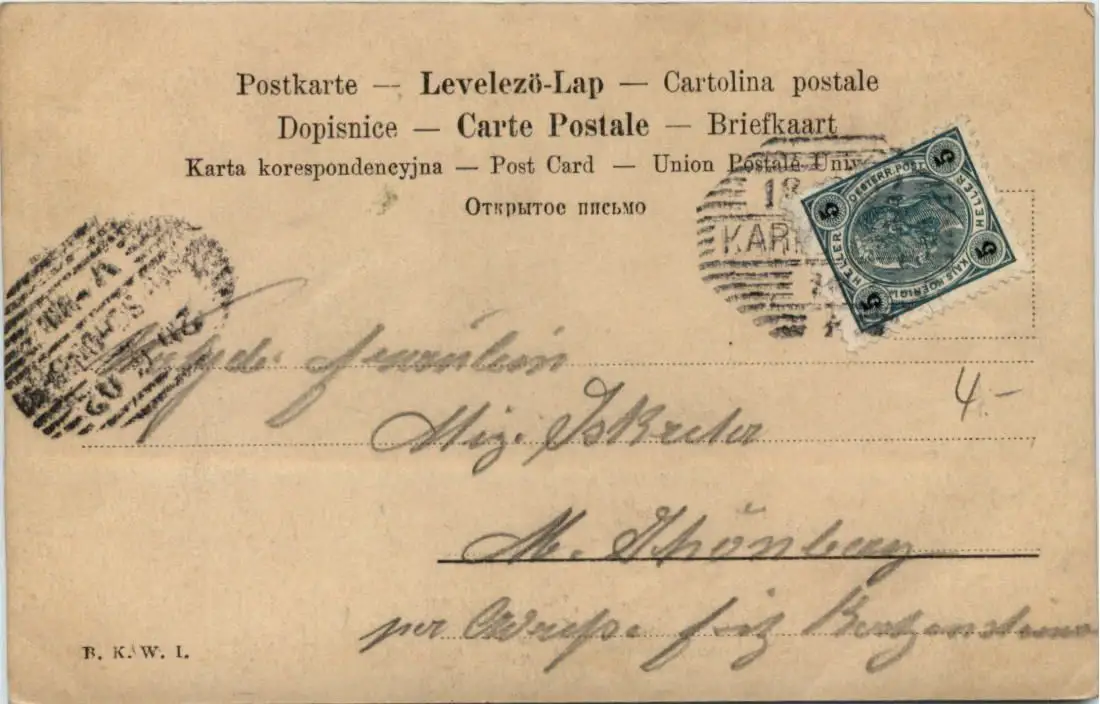 Postkarte — Levelezö-Lap — Cartolina postale
Dopisnice — Carte Postale — Briefkaart
Karta korespondencyjna — Post Card — Union Postale Univ
Открытое письмо
18
KAR
5 OESTERR. POST 5
HELLER HELLER
5 KAIS. KOENIGL 5
Fräulein
4.–
Miz. Iskreter
M. Schönberg
per Adresse Fritz
B. K. W. I.